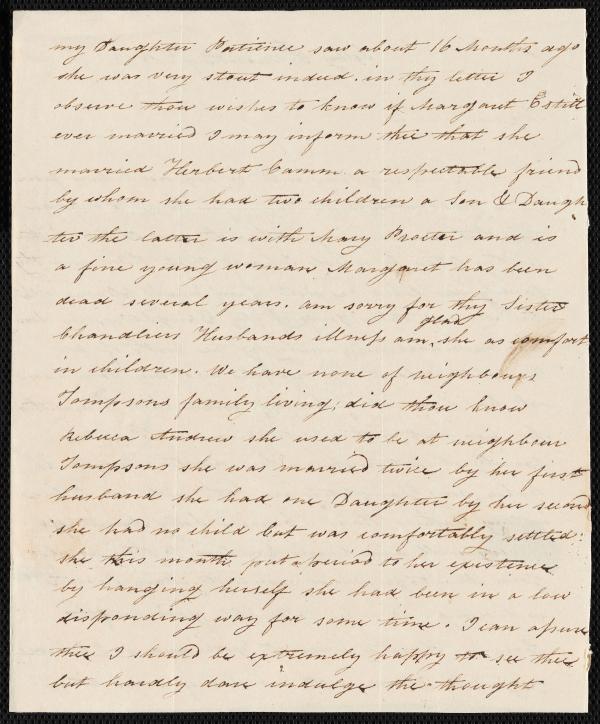 my Daughter Patience saw about 16 Months ago
she was very stout indeed. in thy letter I
observe thou wishes to know if Margaret Estill
ever married I may inform thee that she
married Herbert Camm a respectable friend
by whom she had two children a Son & Daugh
ter the latter is with Mary Procter and is
a fine young woman Margaret has been
dead several years. am sorry for thy Sister
glad
Chandliers Husbands illness am, she as comfort
in children. We have none of neighbours
Tompsons family living; did thou know
Rebecca Andrew she used to be at neighbour
Tompsons she was married twice by her first
husband she had one Daughter by her second
she had no child but was comfortably settled:
she this month put a period to her existence
by hanging herself she had been in a low
disponding way for some time. I can assure
thee I should be extremely happy to see thee
but hardly dare indulge the thought